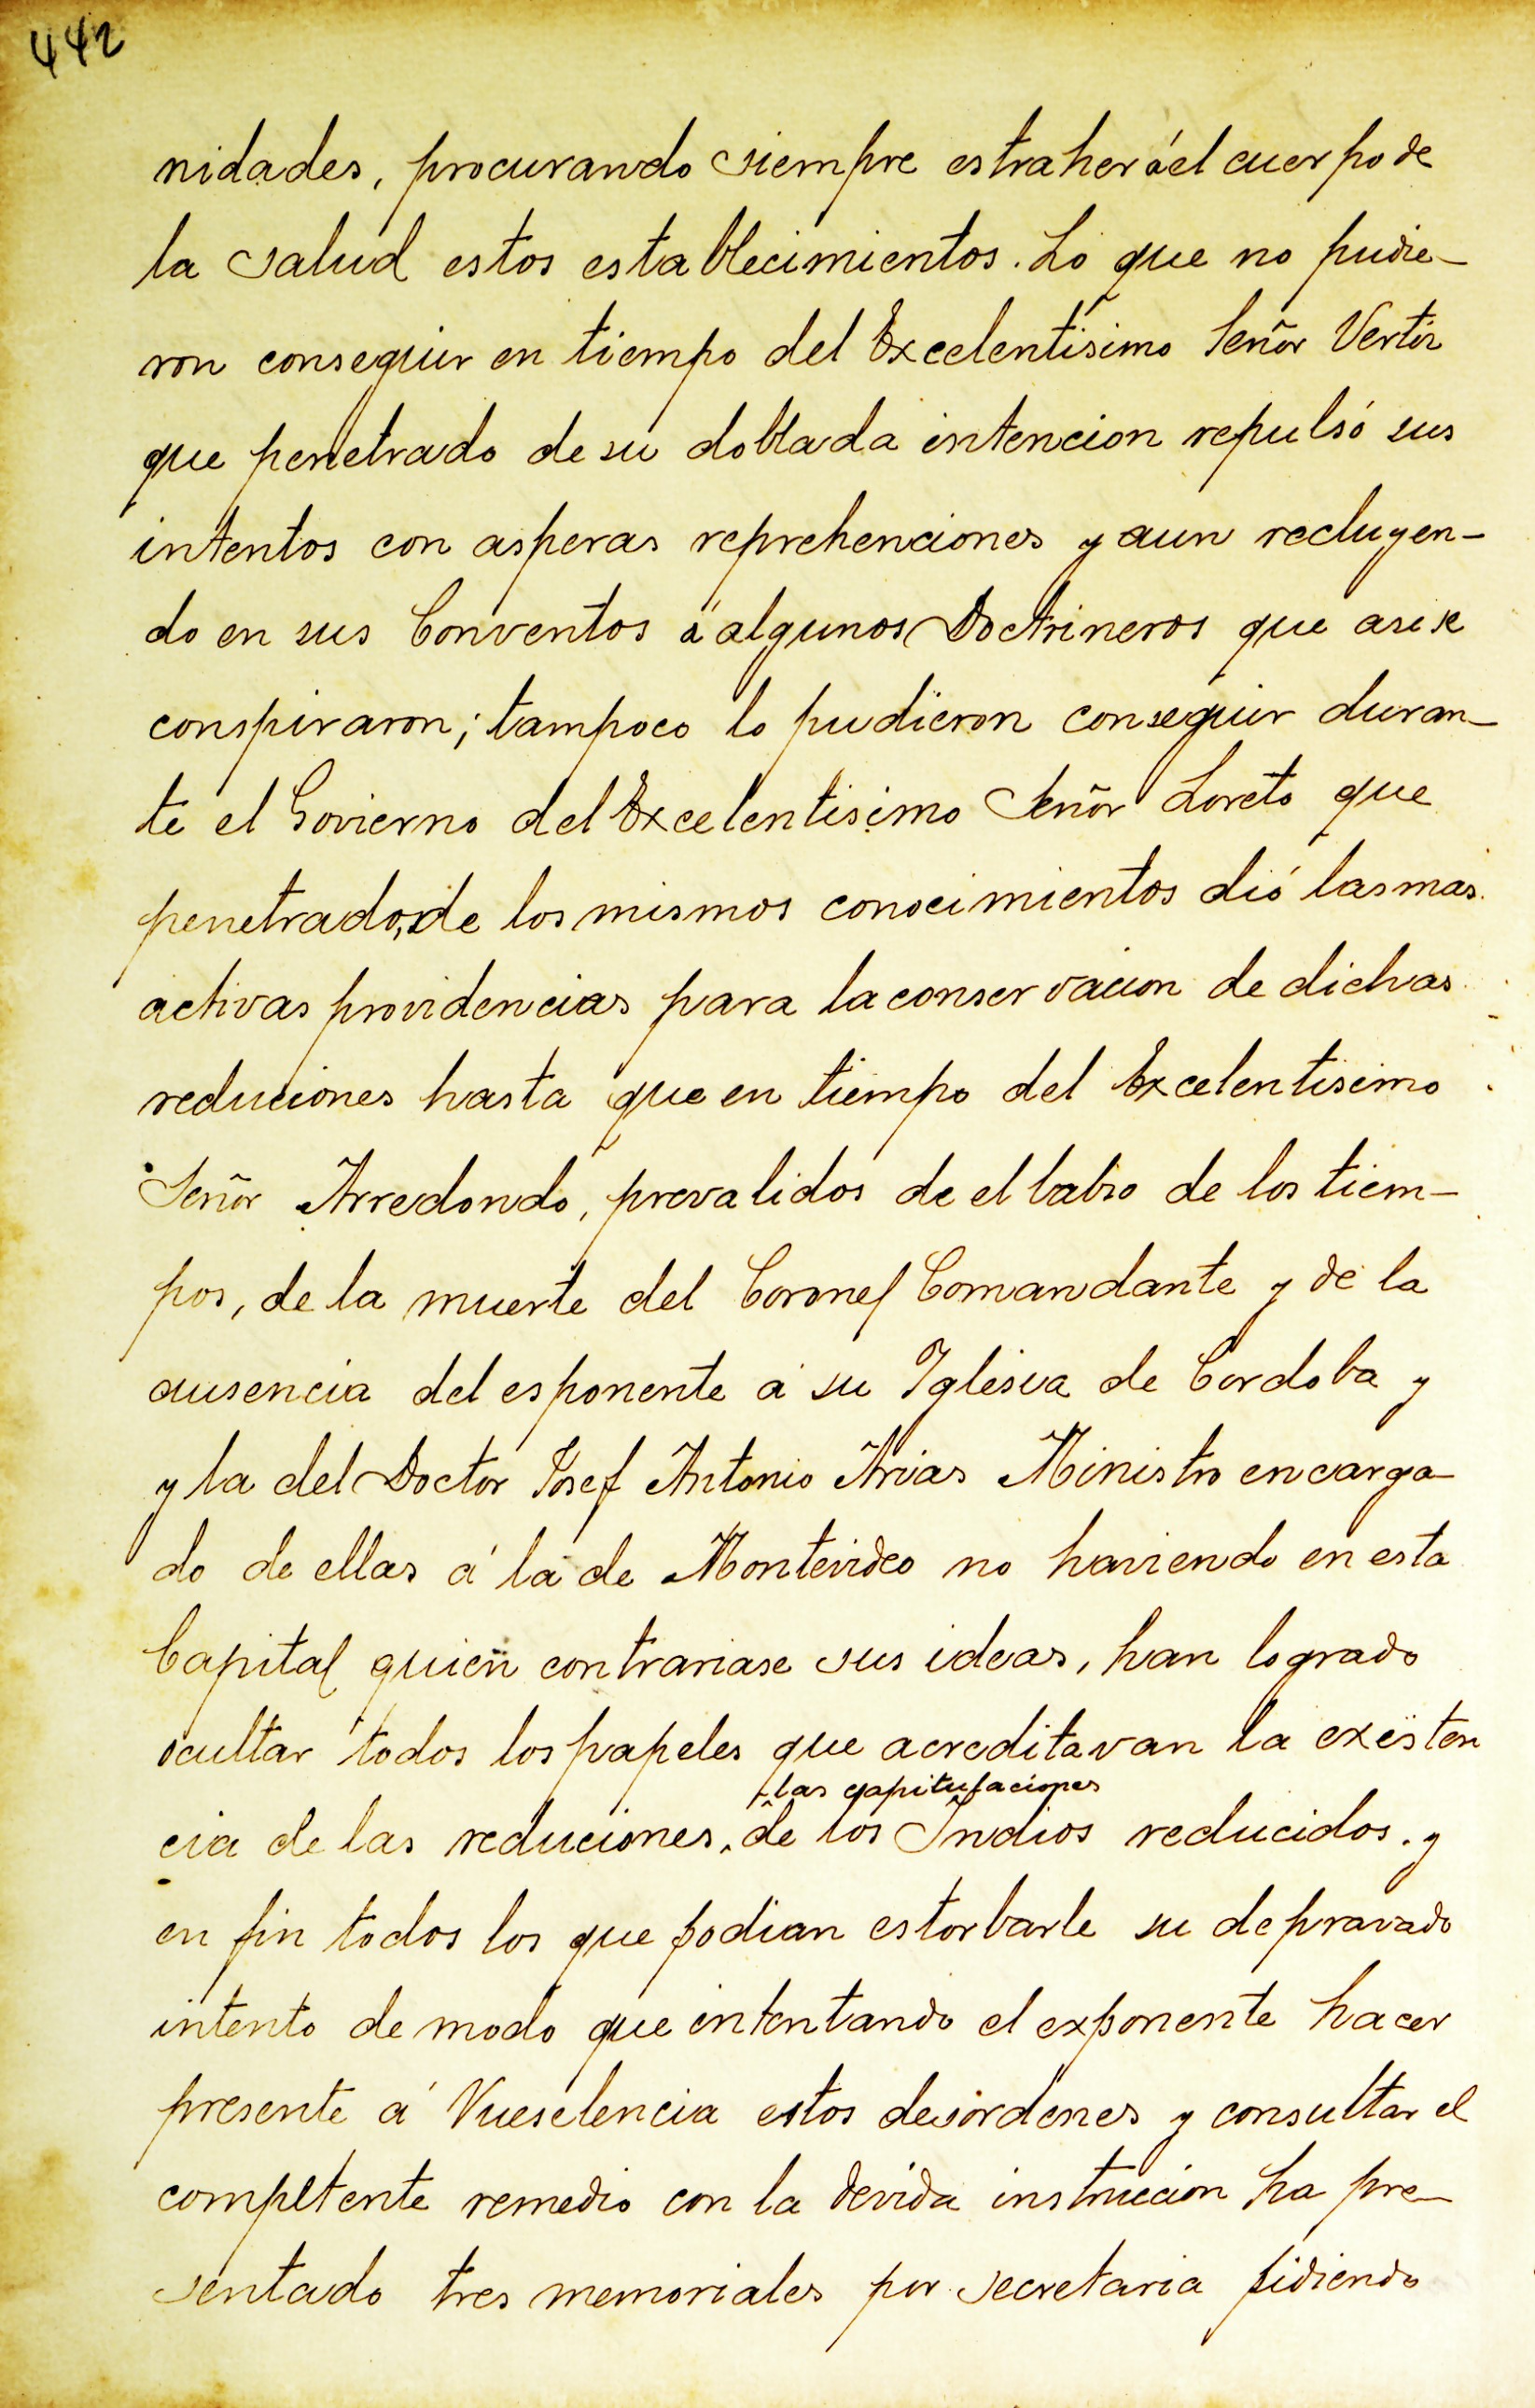 442
nidades, procurando siempre estraher áel cuerpo de
la salud estos establecimientos. Lo que no pudie-
ron conseguir en tiempo del Excelentisimo Señor Vertiz
que penetrado de su doblada intencion repulsó sus
intentos con asperas reprehenciones y aun recluyen-
do en sus Conventos á algunos Doctrineros que asi se
conspiraron; tampoco lo pudieron conseguir duran-
te el Govierno del Excelentisimo Señor Loreto que
penetrado, de los mismos conocimientos dió las mas
activas providencias para la conservacion de dichas
reduciones hasta que en tiempo del Excelentisimo
Señor Arredondo, prevalidos de el labio de los tiem-
pos, de la muerte del Coronel Comandante y de la
ausencia del esponente á su Iglesia de Cordoba y
y la del Doctor Josef Antonio Arias Ministro encarga-
do de ellas á la de Montevideo no haviendo en esta
Capital quien contrariase sus ideas, han logrado
ocultar todos los papeles que acreditavan la existen
las capitulaciones
cia de las reduciones, de los Indios reducidos. y
en fin todos los que podian estorbarle su depravado
intento de modo que intentando el exponente hacer
presente á Vueselencia estos desordenes y consultar el
competente remedio con la devida instrucion ha pre-
sentado tres memoriales por secretaria pidiendo